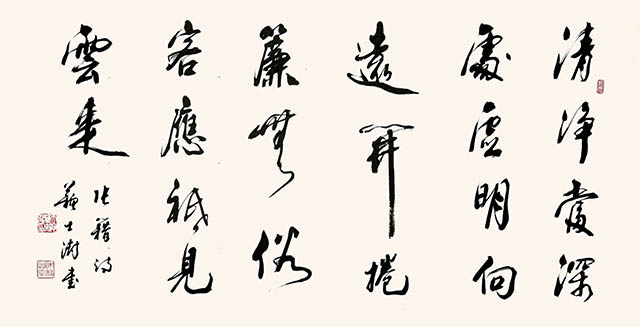 清淨當深
處虛明向
遠開捲
簾無俗
客應祇見
雲來
張籍詩
蘇士澍書